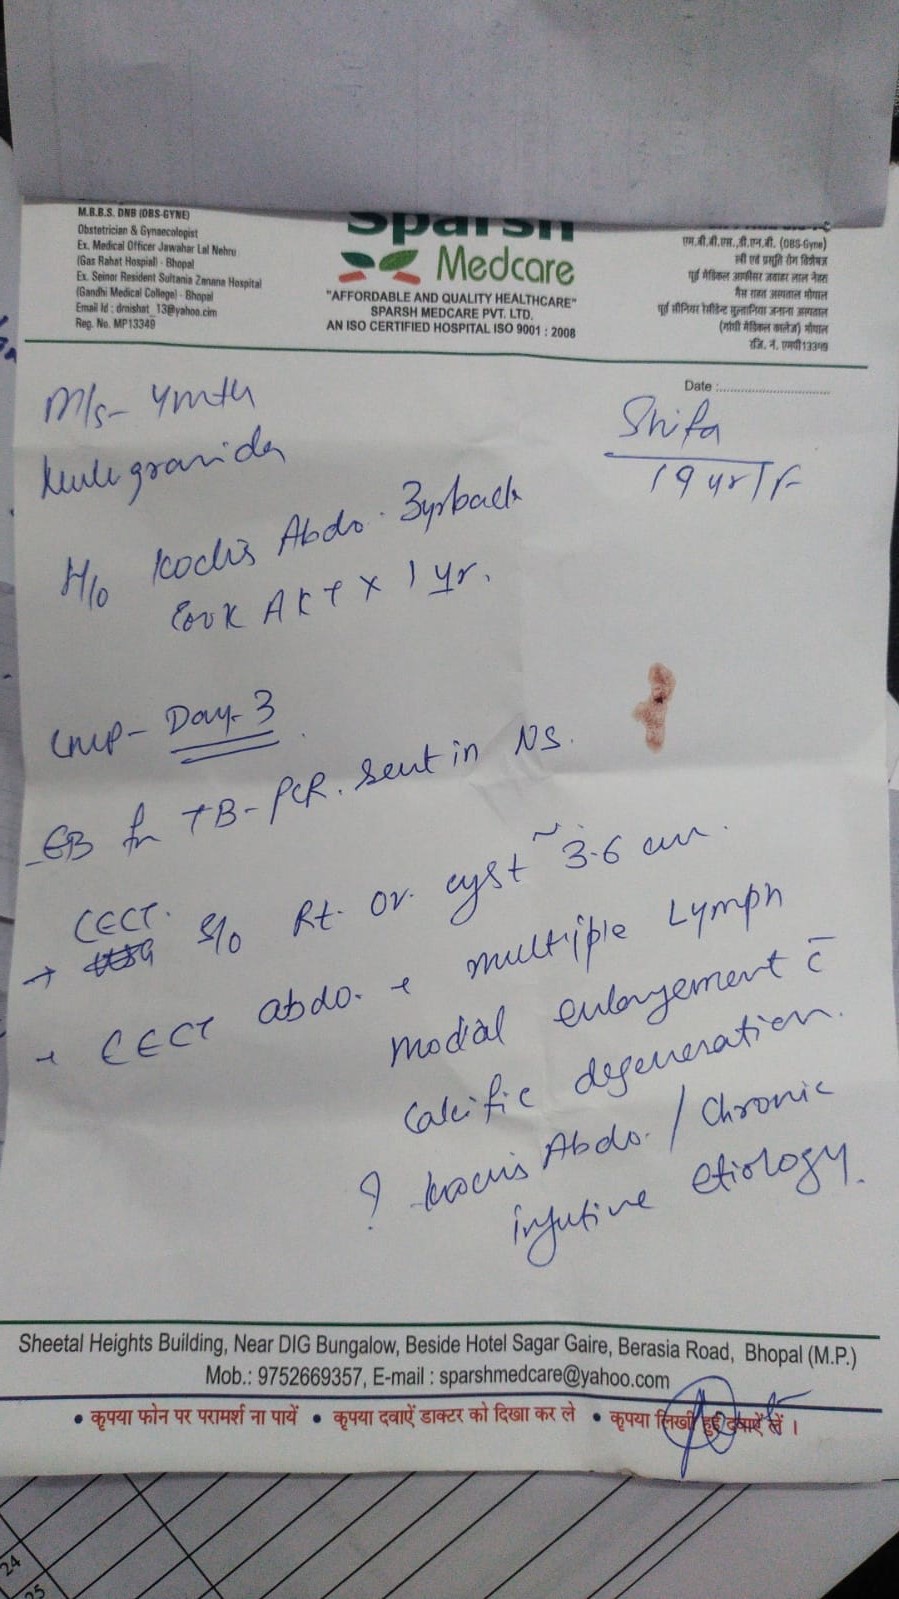 M.B.B.S. DNB (OBS-GYNE)
Obstetrician & Gynaecologist
Ex. Medical Officer Jawahar Lal Nehru
(Gas Rahat Hospial) - Bhopal
Ex. Seinor Resident Sultania Zanana Hospital
(Gandhi Medical College) - Bhopal
Email Id : drnishat_13@yahoo.cim
Reg. No. MP13349
Sparsh
Medcare
"AFFORDABLE AND QUALITY HEALTHCARE"
SPARSH MEDCARE PVT. LTD.
AN ISO CERTIFIED HOSPITAL ISO 9001 : 2008
एम.बी.बी.एस.,डी.एन.बी. (OBS-Gyne)
स्त्री एवं प्रसूति रोग विशेषज्ञ
पूर्व मेडिकल आफीसर जवाहर लाल नेहरु
गैस राहत अस्पताल भोपाल
पूर्व सीनियर रेसीडेन्ट सुल्तानिया जनाना अस्पताल
(गांधी मेडिकल कालेज) भोपाल
रजि. नं. एमपी13349
Date :
Shifa
19 yr/F
M/s- 4mth
Nulligravida
H/o Koch's Abdo. 3yrback
took AKT x 1 yr.
LMP- Day-3
-EB for TB-PCR. sent in NS.
CECT.
→ S/o Rt. Ov. cyst ~ 3.6 cm.
→ CECT abdo. → multiple Lymph
nodal enlargement c̄
Calcific degeneration.
? Koch's Abdo. / Chronic
infective etiology.
Sheetal Heights Building, Near DIG Bungalow, Beside Hotel Sagar Gaire, Berasia Road, Bhopal (M.P.)
Mob.: 9752669357, E-mail : sparshmedcare@yahoo.com
• कृपया फोन पर परामर्श ना पायें • कृपया दवाऐं डाक्टर को दिखा कर ले • कृपया लिखी हुई दवाऐं लें ।
24
25